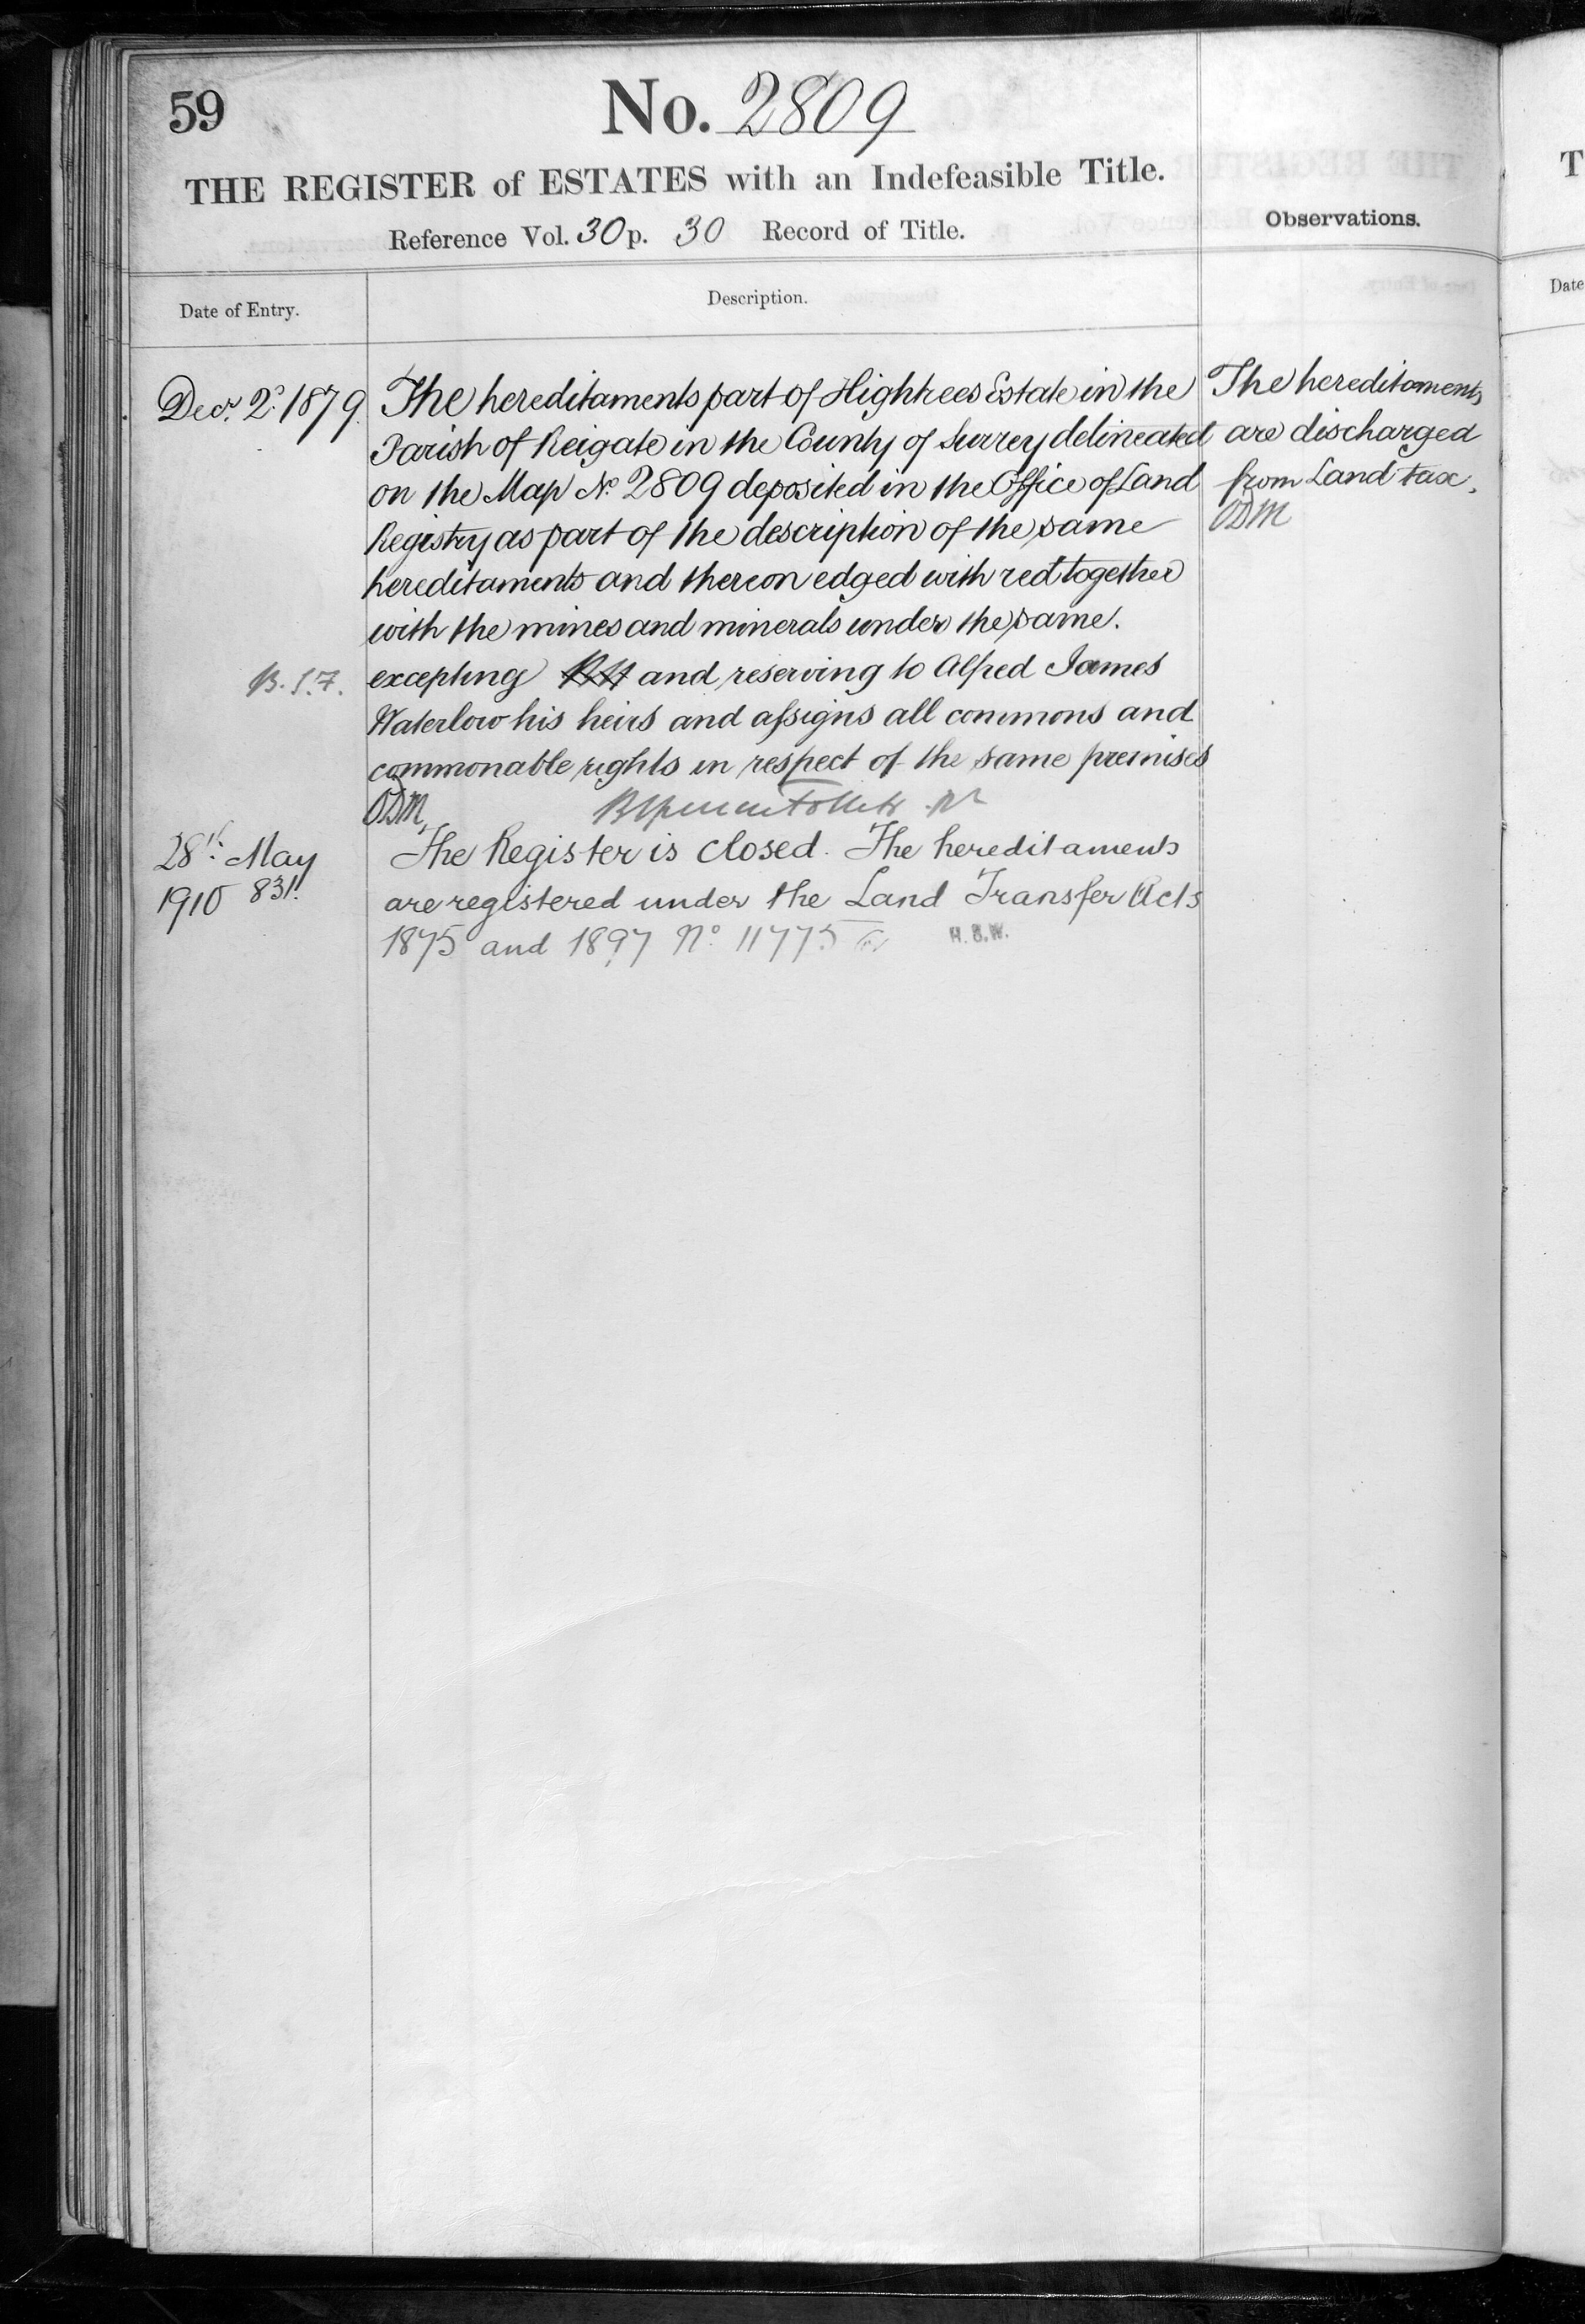 59
No. 2809
THE REGISTER of ESTATES with an Indefeasible Title.
Reference Vol. 30 p. 30 Record of Title.
Observations.
Date of Entry.
Description.
Decr. 2d. 1879.
The hereditaments part of Hightrees Estate in the
Parish of Reigate in the County of Surrey delineated
on the Map No. 2809 deposited in the Office of Land
Registry as part of the description of the same
hereditaments and thereon edged with red together
with the mines and minerals under the same.
excepting and reserving to Alfred James
Waterlow his heirs and assigns all commons and
commonable rights in respect of the same premises
ODM
The hereditaments
are discharged
from Land tax.
ODM
28th. May
1910 831.
The Register is closed. The hereditaments
are registered under the Land Transfer Acts
1875 and 1897 No. 11775
H.B.W.
T
Date